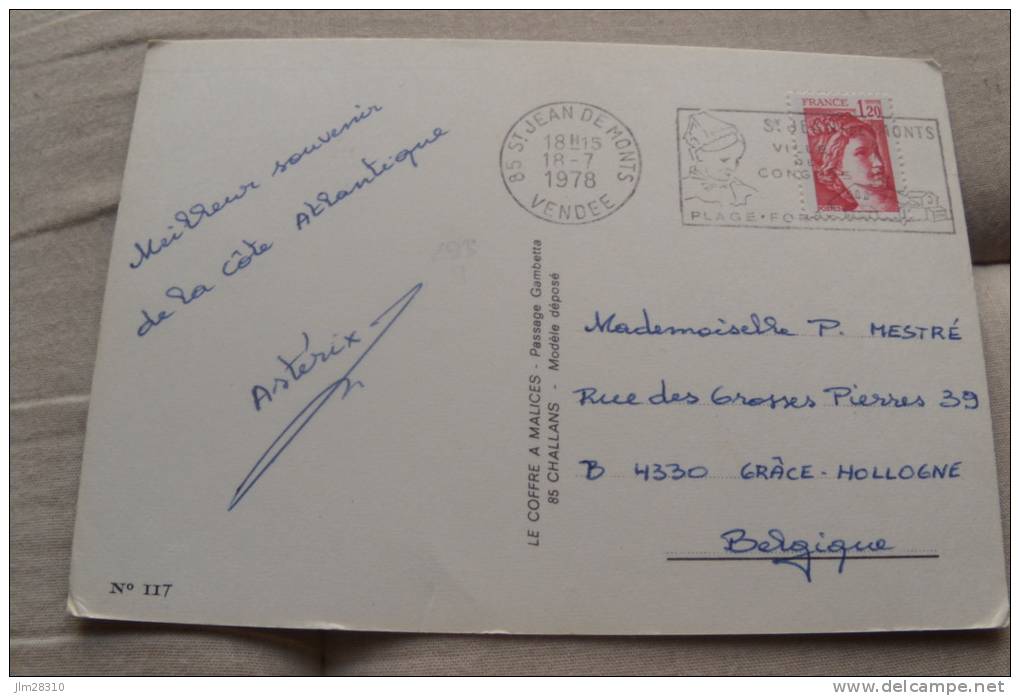 Meilleur souvenir
de la côte Atlantique
Astérix
N° 117
LE COFFRE A MALICES - Passage Gambetta
85 CHALLANS - Modèle déposé
85 ST JEAN DE MONTS
18H15
18-7
1978
VENDEE
FRANCE 1,20
ST JEAN MONTS
VILLE
DE
CONGRES
PLAGE · FOR
Mademoiselle P. MESTRÉ
Rue des Grosses Pierres 39
B 4330 GRÂCE-HOLLOGNE
Belgique
jlm28310
delcampe.net